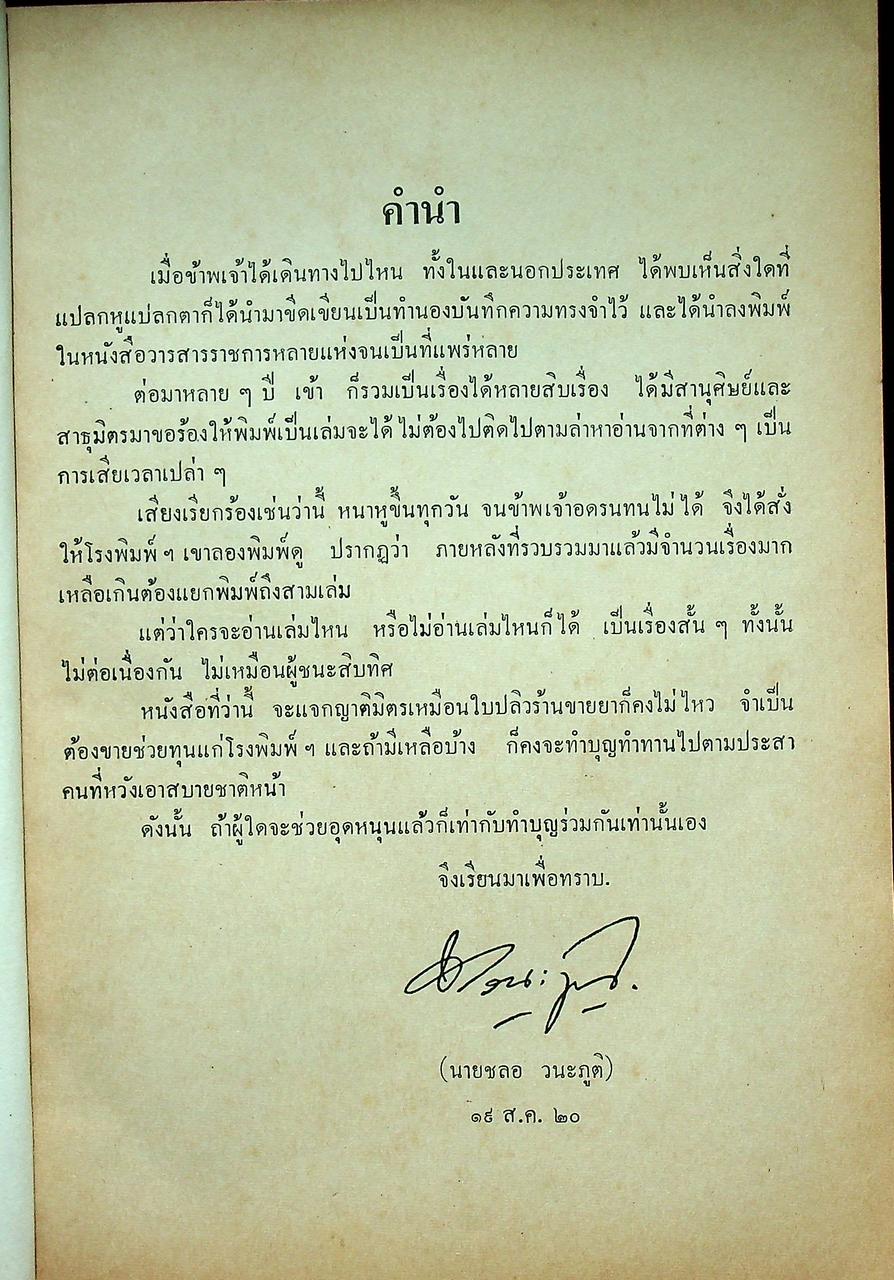 คำนำ
เมื่อข้าพเจ้าได้เดินทางไปไหน ทั้งในและนอกประเทศ ได้พบเห็นสิ่งใดที่
แปลกหูแปลกตาก็ได้นำมาขีดเขียนเป็นทำนองบันทึกความทรงจำไว้ และได้นำลงพิมพ์
ในหนังสือวารสารราชการหลายแห่งจนเป็นที่แพร่หลาย
ต่อมาหลาย ๆ ปี เข้า ก็รวมเป็นเรื่องได้หลายสิบเรื่อง ได้มีสานุศิษย์และ
สาธุมิตรมาขอร้องให้พิมพ์เป็นเล่มจะได้ไม่ต้องไปติดไปตามล่าหาอ่านจากที่ต่าง ๆ เป็น
การเสียเวลาเปล่า ๆ
เสียงเรียกร้องเช่นว่านี้ หนาหูขึ้นทุกวัน จนข้าพเจ้าอดรนทนไม่ได้ จึงได้สั่ง
ให้โรงพิมพ์ ฯ เขาลองพิมพ์ดู ปรากฏว่า ภายหลังที่รวบรวมมาแล้วมีจำนวนเรื่องมาก
เหลือเกินต้องแยกพิมพ์ถึงสามเล่ม
แต่ว่าใครจะอ่านเล่มไหน หรือไม่อ่านเล่มไหนก็ได้ เป็นเรื่องสั้น ๆ ทั้งนั้น
ไม่ต่อเนื่องกัน ไม่เหมือนผู้ชนะสิบทิศ
หนังสือที่ว่านี้ จะแจกญาติมิตรเหมือนใบปลิวร้านขายยาก็คงไม่ไหว จำเป็น
ต้องขายช่วยทุนแก่โรงพิมพ์ ฯ และถ้ามีเหลือบ้าง ก็คงจะทำบุญทำทานไปตามประสา
คนที่หวังเอาสบายชาติหน้า
ดังนั้น ถ้าผู้ใดจะช่วยอุดหนุนแล้วก็เท่ากับทำบุญร่วมกันเท่านั้นเอง
จึงเรียนมาเพื่อทราบ.
(นายชลอ วนะภูติ)
๑๙ ส.ค. ๒๐